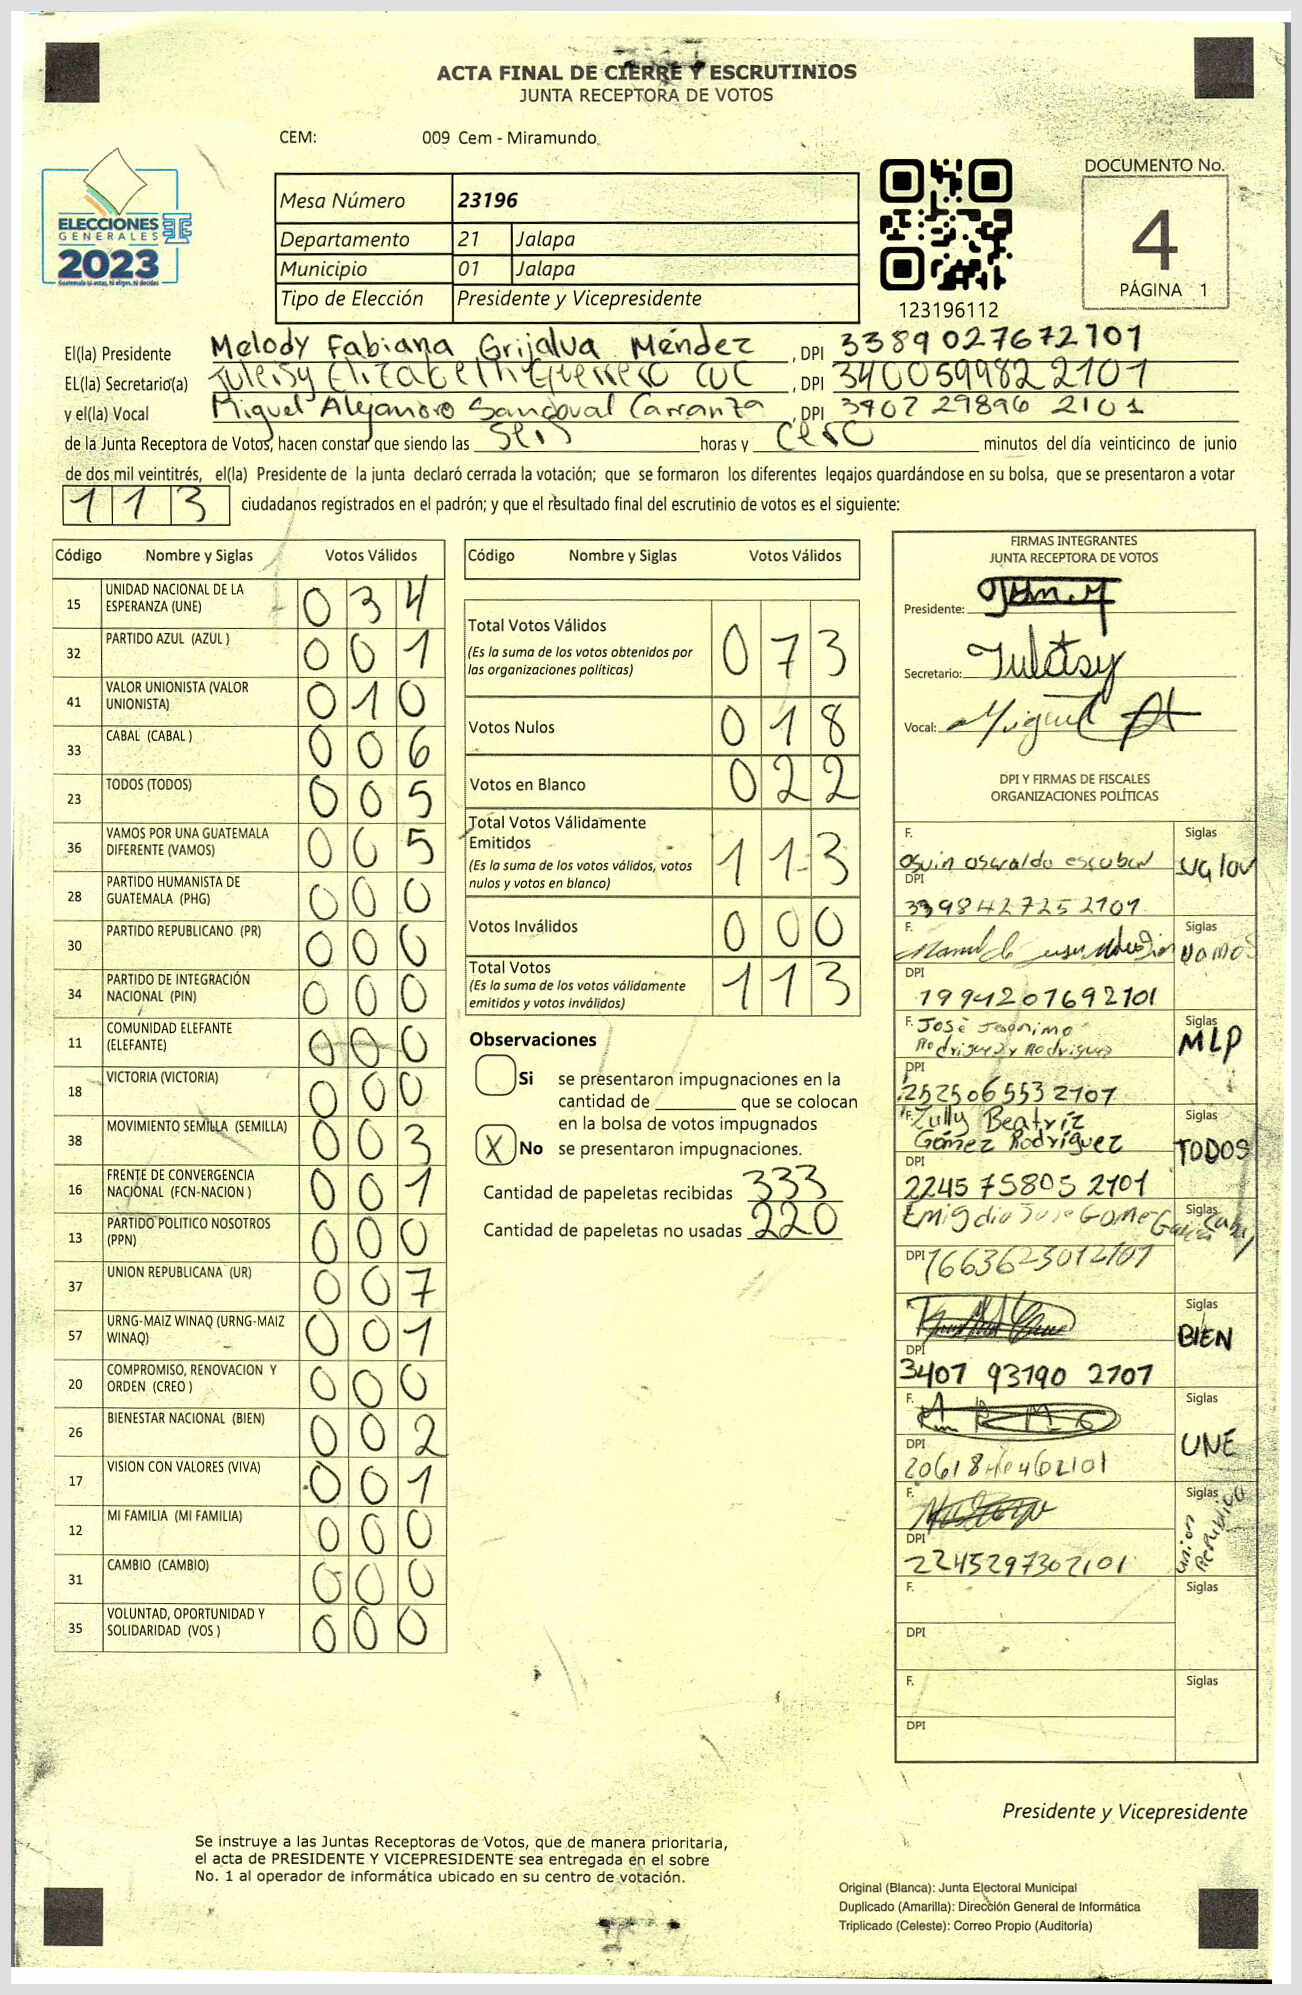 ACTA FINAL DE CIERRE Y ESCRUTINIOS
JUNTA RECEPTORA DE VOTOS
CEM: 009 Cem - Miramundo
ELECCIONES
GENERALES
2023
Guatemala tú votas, tú eliges, tú decides
Mesa Número 23196
Departamento 21 Jalapa
Municipio 01 Jalapa
Tipo de Elección Presidente y Vicepresidente
123196112
DOCUMENTO No.
4
PÁGINA 1
El(la) Presidente Melody Fabiana Grijalva Méndez , DPI 3389027672101
EL(la) Secretario(a) Yuleisy Elizabeth Guerrero , DPI 3400599822101
y el(la) Vocal Miguel Alejandro Sandoval Carranza , DPI 3407 29896 2101
de la Junta Receptora de Votos, hacen constar que siendo las Seis horas y cero minutos del día veinticinco de junio
de dos mil veintitrés, el(la) Presidente de la junta declaró cerrada la votación; que se formaron los diferentes legajos guardándose en su bolsa, que se presentaron a votar
113 ciudadanos registrados en el padrón; y que el resultado final del escrutinio de votos es el siguiente:
Código Nombre y Siglas Votos Válidos
15 UNIDAD NACIONAL DE LA ESPERANZA (UNE) 034
32 PARTIDO AZUL (AZUL ) 001
41 VALOR UNIONISTA (VALOR UNIONISTA) 010
33 CABAL (CABAL ) 006
23 TODOS (TODOS) 005
36 VAMOS POR UNA GUATEMALA DIFERENTE (VAMOS) 005
28 PARTIDO HUMANISTA DE GUATEMALA (PHG) 000
30 PARTIDO REPUBLICANO (PR) 000
34 PARTIDO DE INTEGRACIÓN NACIONAL (PIN) 000
11 COMUNIDAD ELEFANTE (ELEFANTE) 000
18 VICTORIA (VICTORIA) 000
38 MOVIMIENTO SEMILLA (SEMILLA) 003
16 FRENTE DE CONVERGENCIA NACIONAL (FCN-NACION ) 001
13 PARTIDO POLITICO NOSOTROS (PPN) 000
37 UNION REPUBLICANA (UR) 007
57 URNG-MAIZ WINAQ (URNG-MAIZ WINAQ) 001
20 COMPROMISO, RENOVACION Y ORDEN (CREO ) 000
26 BIENESTAR NACIONAL (BIEN) 002
17 VISION CON VALORES (VIVA) 001
12 MI FAMILIA (MI FAMILIA) 000
31 CAMBIO (CAMBIO) 000
35 VOLUNTAD, OPORTUNIDAD Y SOLIDARIDAD (VOS ) 000
Código Nombre y Siglas Votos Válidos
Total Votos Válidos 073
(Es la suma de los votos obtenidos por
las organizaciones políticas)
Votos Nulos 018
Votos en Blanco 022
Total Votos Válidamente
Emitidos 113
(Es la suma de los votos válidos, votos
nulos y votos en blanco)
Votos Inválidos 000
Total Votos 113
(Es la suma de los votos válidamente
emitidos y votos inválidos)
Observaciones
Si se presentaron impugnaciones en la
cantidad de ________ que se colocan
en la bolsa de votos impugnados
X No se presentaron impugnaciones.
Cantidad de papeletas recibidas 333
Cantidad de papeletas no usadas 220
FIRMAS INTEGRANTES
JUNTA RECEPTORA DE VOTOS
Presidente:
Secretario: Yuleisy
Vocal: Miguel
DPI Y FIRMAS DE FISCALES
ORGANIZACIONES POLÍTICAS
F. Osuin Oswaldo escobar Siglas Valor
DPI 3398427252101
F. Siglas VAMOS
DPI 1994207692101
F. José Jerónimo Siglas MLP
Rodríguez y Rodriguez
DPI 2525065532107
F. Zully Beatríz Siglas TODOS
Gómez Rodríguez
DPI 2245 75805 2101
Emigdio Jose Gomez Garcia Siglas Cabal
DPI 1663623012101
F. Siglas BIEN
DPI 3407 93190 2707
F. Siglas UNE
DPI
F. Siglas Union Republica
DPI 2245297302101
F. Siglas
DPI
F. Siglas
DPI
Presidente y Vicepresidente
Se instruye a las Juntas Receptoras de Votos, que de manera prioritaria,
el acta de PRESIDENTE Y VICEPRESIDENTE sea entregada en el sobre
No. 1 al operador de informática ubicado en su centro de votación.
Original (Blanca): Junta Electoral Municipal
Duplicado (Amarilla): Dirección General de Informática
Triplicado (Celeste): Correo Propio (Auditoría)